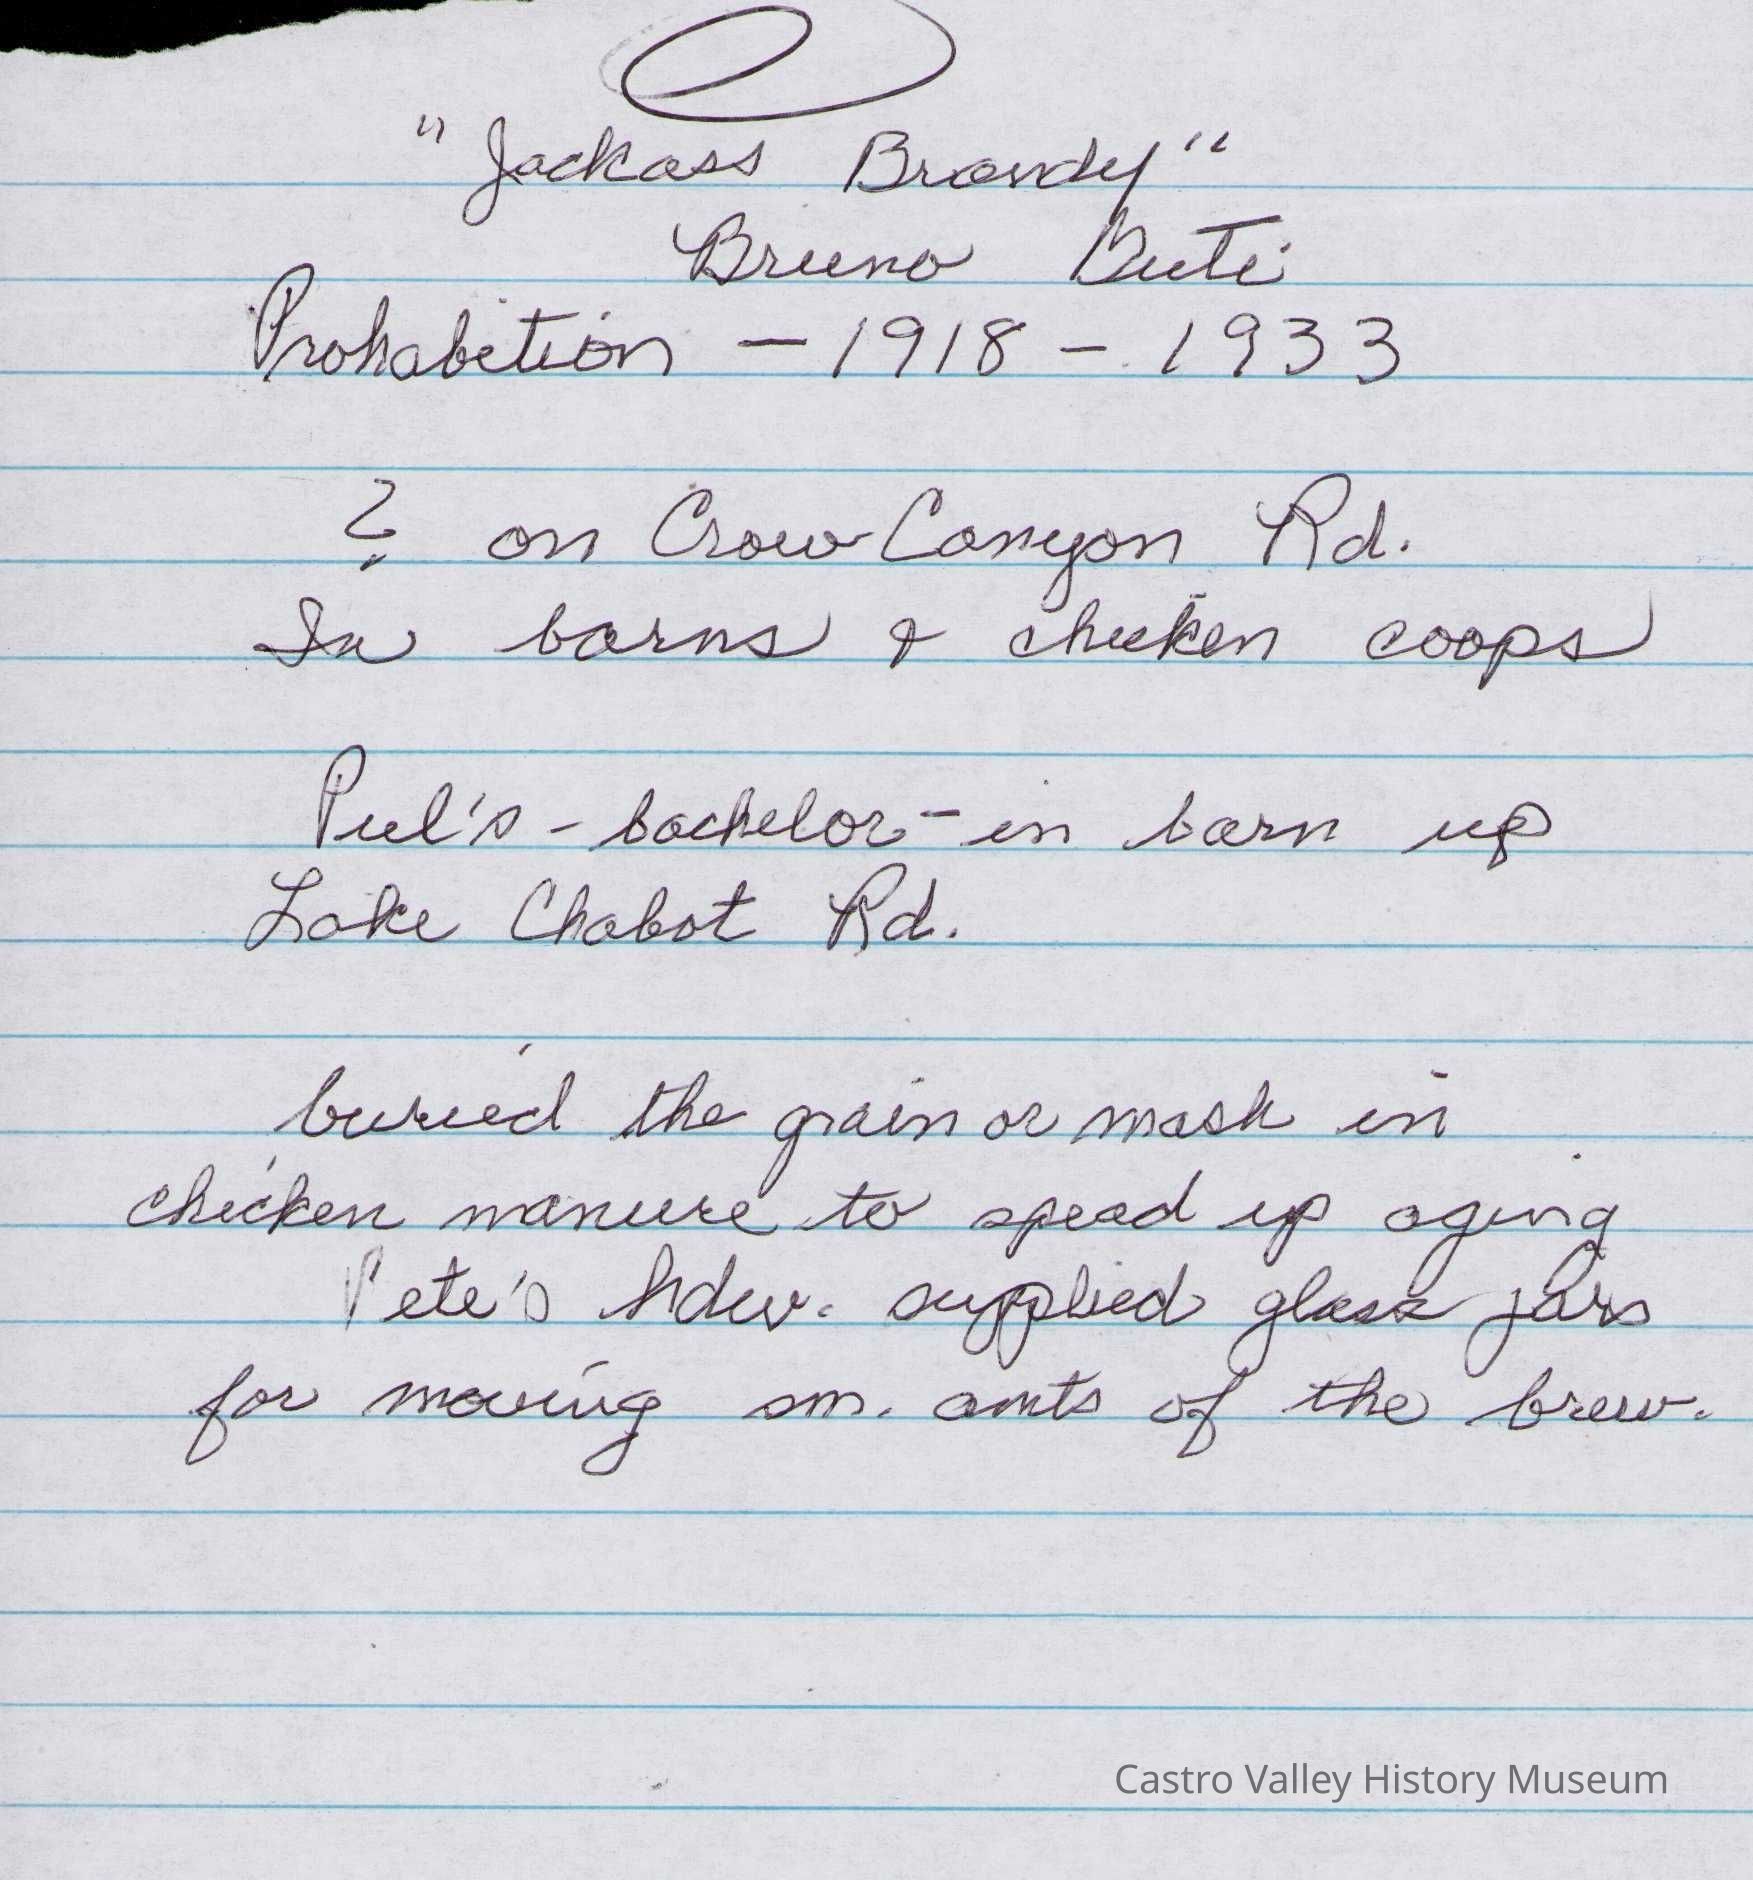 "Jackass Brandy"
Bruno Buti
Prohabition - 1918 - 1933
? on Crow Canyon Rd.
In barns & chicken coops
Piel's - bachelor - in barn up
Lake Chabot Rd.
buried the grain or mash in
chicken manure to speed up aging
Pete's hdw. supplied glass jars
for moving sm. amts of the brew.
Castro Valley History Museum